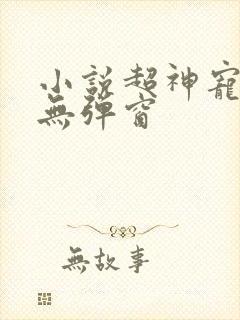 小說超神寵
無彈窗
無故事